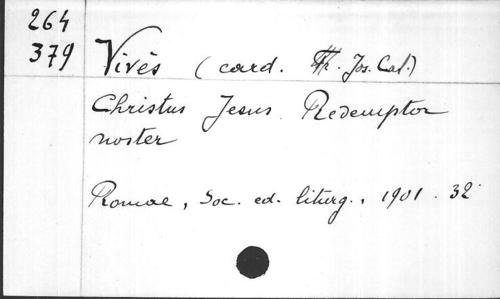 264
379
Vivès (card. Jos. Cal.)
Christus Jesus Redemptor
noster
Romae, Soc. ed. liturg., 1901. 32°